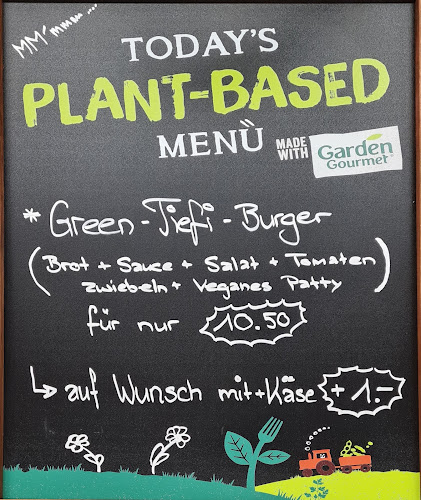 MM' mmm...
TODAY'S
PLANT-BASED
MENÙ
MADE WITH
Garden Gourmet
* Green-Tiefi-Burger
(Brot + Sauce + Salat + Tomaten
Zwiebeln + Veganes Patty)
für nur 10.50
↳ auf Wunsch mit + Käse + 1.-